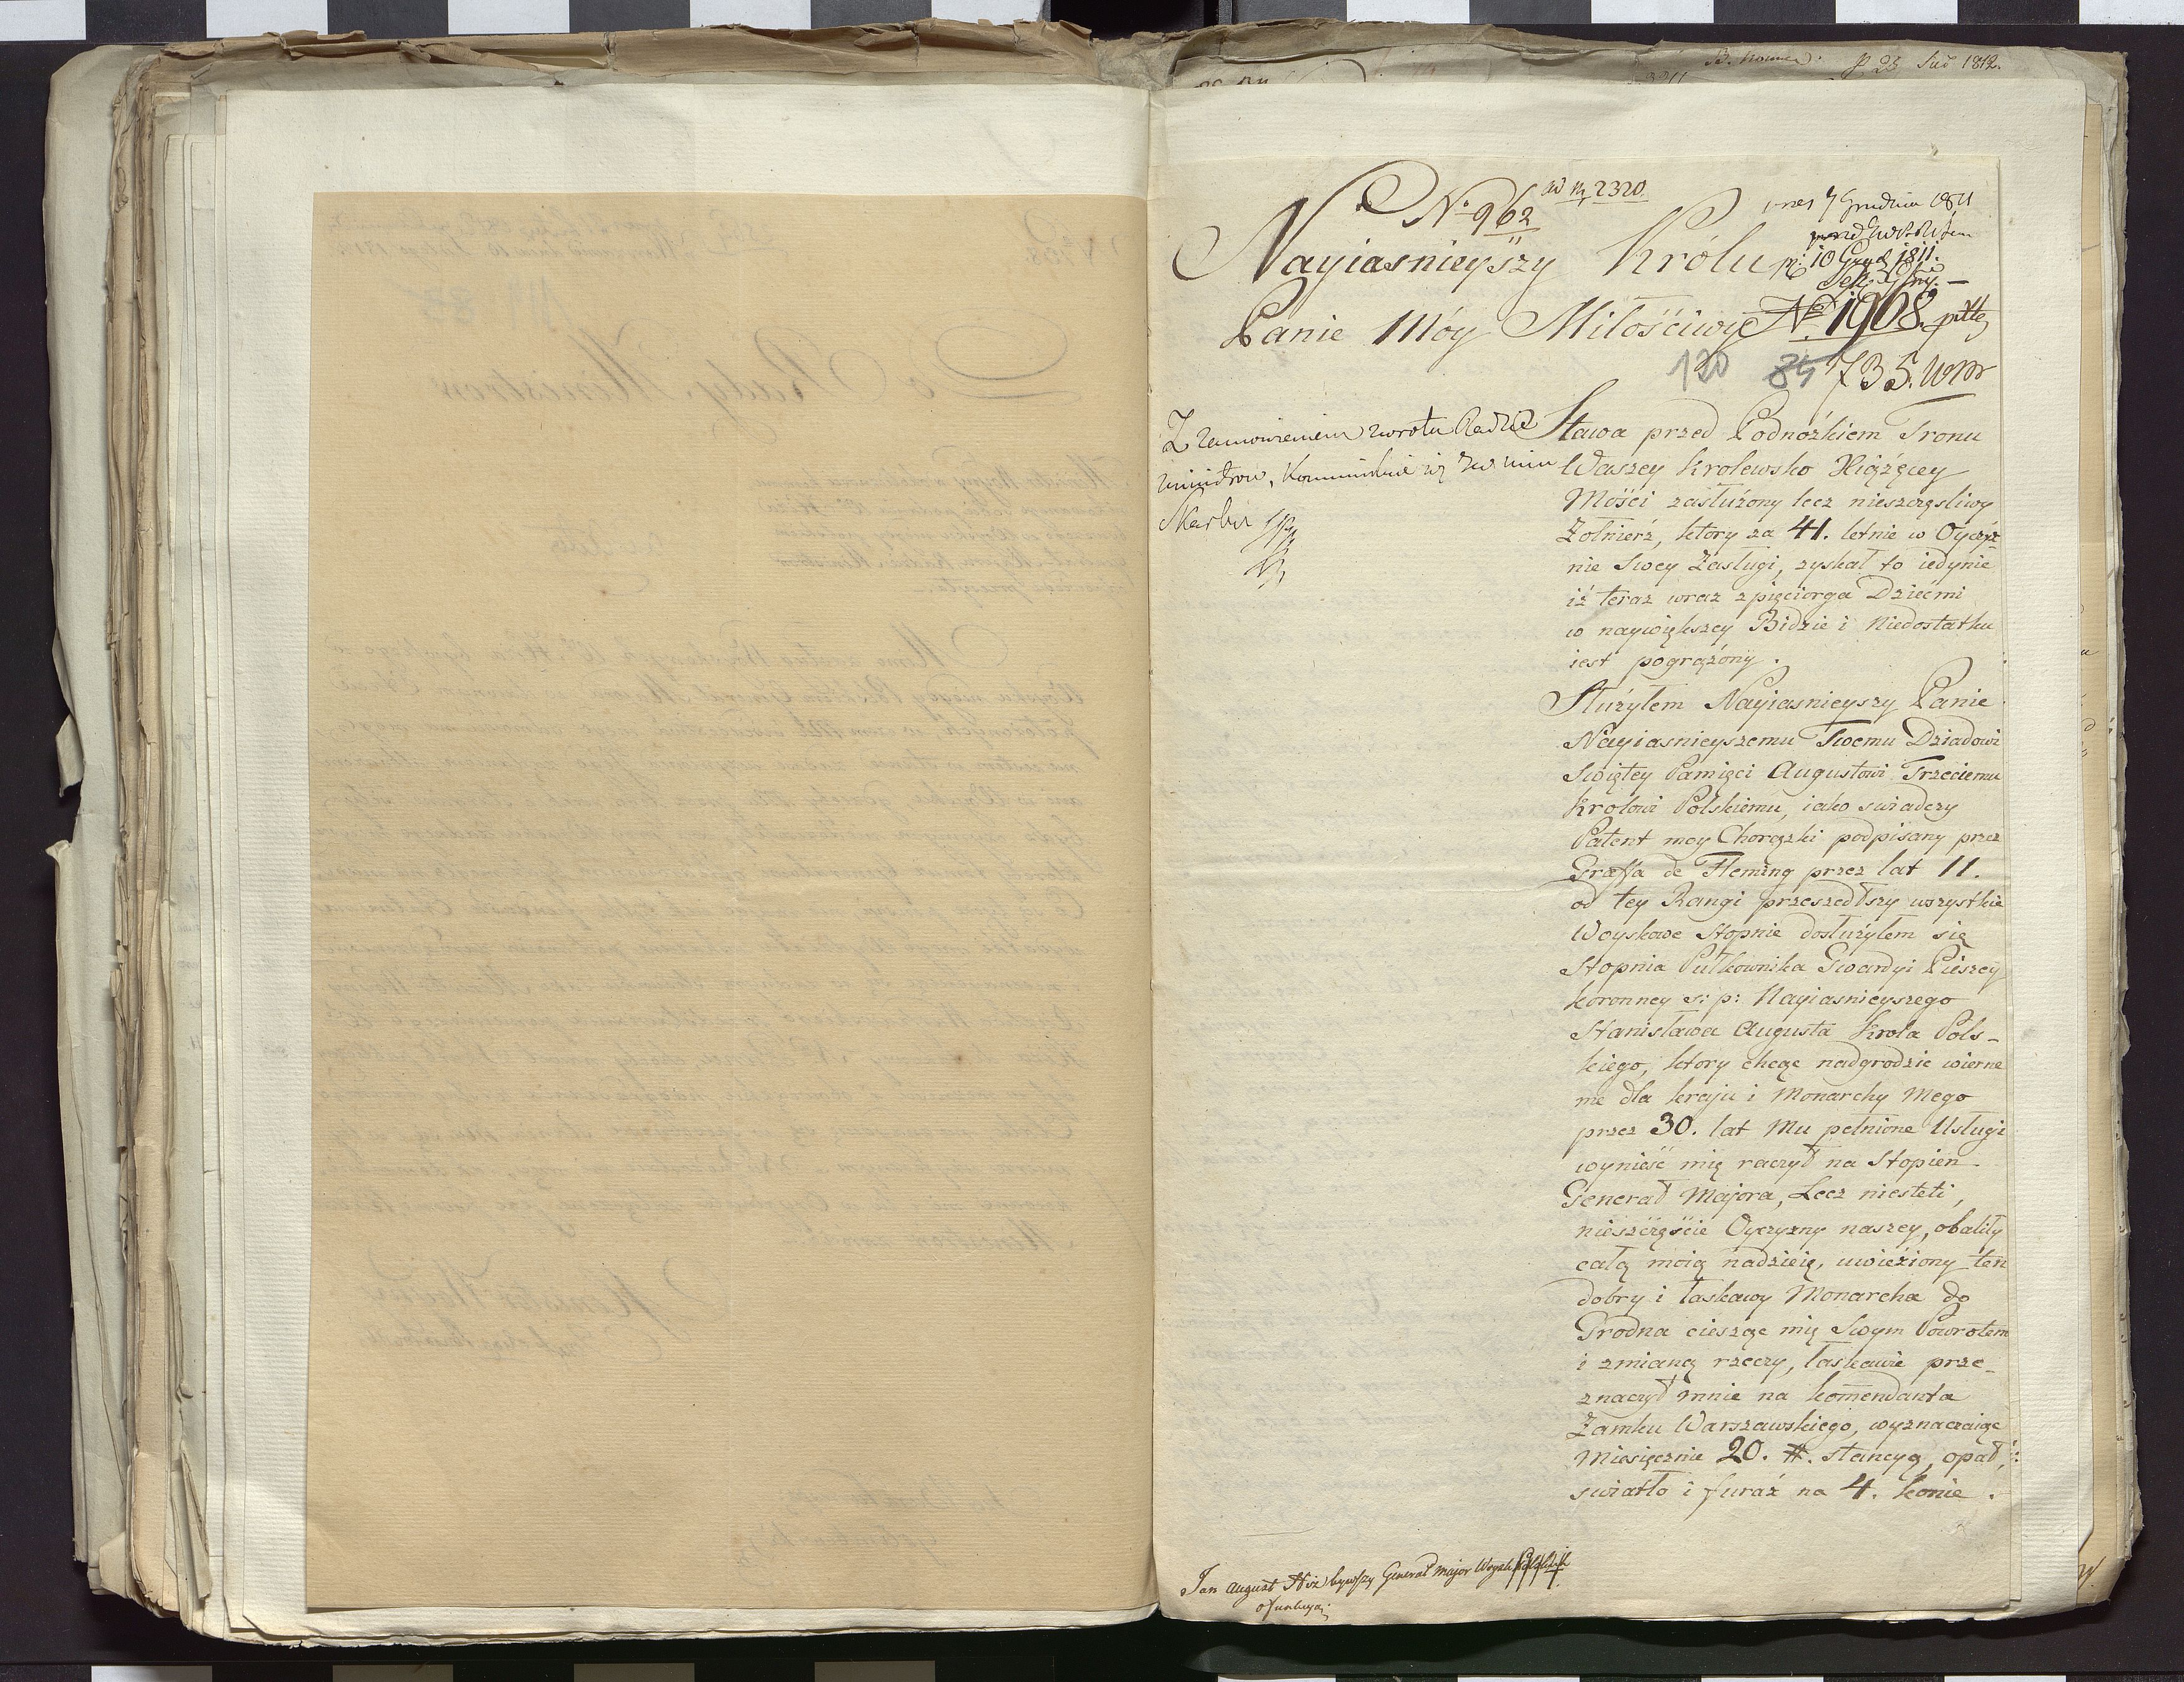 B. 23 Sud 1812.
ad N 2320.
N. 962
Nayiasnieyszy Królu
Panie Móy Miłośćiwy
7 Grudnia 1811
10 Grud 1811.
N 1908. pitte
120 84 735. WM
Z zamowieniem zwrotu Radzie
ministrow, Kommunikuie
Skarbu
Stawa przed Podnóżkiem Tronu
Waszey Krolewsko Xiążęcey
Mości zasłużony lecz nieszczęsliwy
Żołnierz, ktory za 41. letnie w Oyczyz
nie Swey Zasługi, zyskał to iedynie
iż teraz wraz z pięciorga Dziećmi
w naywiększey Bidzie i Niedostatku
iest pogrążony.
Służyłem Nayiasnieyszy Panie
Nayiasnieyszemu Twemu Dziadowi
Swiętey Pamięci Augustowi Trzeciemu
Krolowi Polskiemu, iako swiadczy
Patent moy Chorążski podpisany przez
Graffa de Fleming przez lat 11.
od tey Rangi przeszedłszy wszystkie
Woyskowe Stopnie dosłużyłem się
Stopnia Pułkownika Gwardyi Pieszey
koronney s: p: Nayiasnieyszego
Stanisława Augusta Krola Pols-
kiego, ktory chcąc nadgrodzic wierne
me dla kraju i Monarchy Mego
przez 30. lat Mu pełnione Usługi
wynieść mię raczył na Stopien
Generał Majora, Lecz niesteti,
nieszczęście Oyczyzny naszey, obaliły
całą moią nadzieię, uwieziony ten
dobry i łaskawy Monarcha do
Grodna ciesząc mię Swym Powrotem
i zmianą rzeczy, łaskawie prze-
znaczył mnie na komendanta
Zamku Warszawskiego, wyznaczaiąc
Miesięcznie 20. #. stancyą, opał,
swiatło i furaż na 4. konie.
Jan August Hiż bywszy Generał major Woysk Polskich